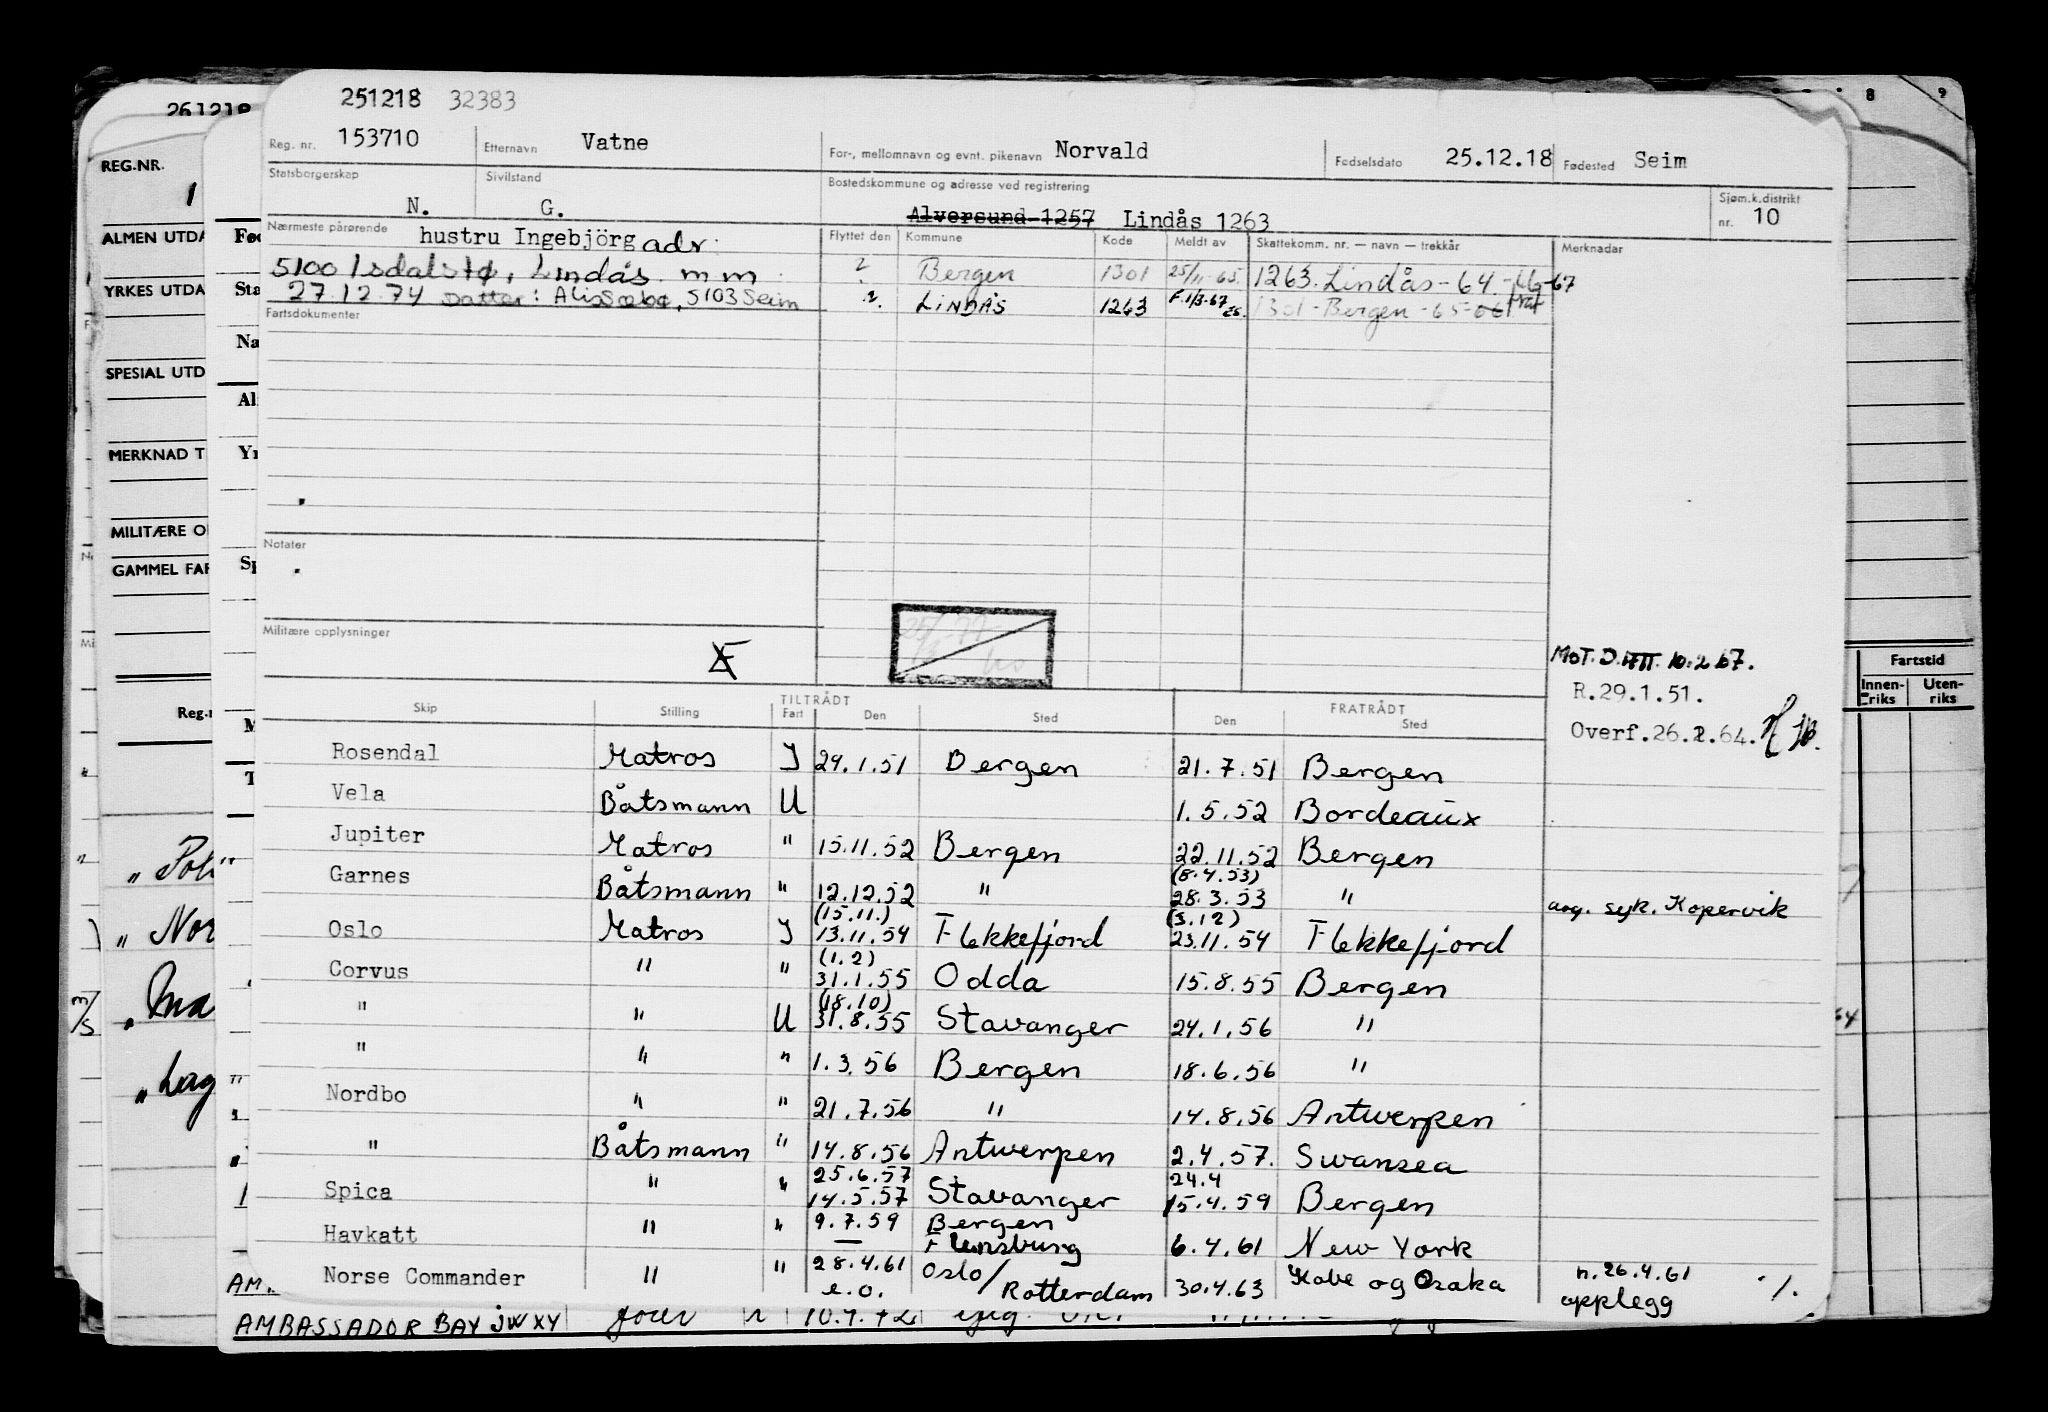 251218 32383
Reg. nr. 153710 Etternavn Vatne For-, mellomnavn og evnt. pikenavn Norvald Fødselsdato 25.12.18 Fødested Seim
Statsborgerskap N. Sivilstand G. Bostedskommune og adresse ved registrering Alversund 1257 Lindås 1263 Sjøm.k.distrikt nr. 10
Nærmeste pårørende hustru Ingebjörg adr: Flyttet den Kommune Kode Meldt av Skattekomm. nr. — navn — trekkår Merknader
5100 Isdalstø, Lindås. m m ? Bergen 1301 25/11-65. 1263. Lindås - 64. -67
27.12.74 Datter: , 5103 Seim ?. LINDÅS 1263 F.1/3-67 1301 - Bergen - 65-
Fartsdokumenter
Notater
Militære opplysninger
10.2.67.
R.29.1.51.
Overf.26.2.64.
TILTRÅDT FRATRÅDT
Skip Stilling Fart Den Sted Den Sted
Rosendal Matros J 29.1.51 Bergen 21.7.51 Bergen
Vela Båtsmann U 1.5.52 Bordeaux
Jupiter Matros " 15.11.52 Bergen 22.11.52 Bergen
(8.4.53)
Garnes Båtsmann " 12.12.52 " 28.3.53 " avg. syk. Kopervik
(15.11.) (3.12)
Oslo Matros J 13.11.54 Flekkefjord 23.11.54 Flekkefjord
(1.2)
Corvus " " 31.1.55 Odda 15.8.55 Bergen
(18.10)
" " U 31.8.55 Stavanger 24.1.56 "
" " " 1.3.56 Bergen 18.6.56 "
Nordbo " " 21.7.56 " 14.8.56 Antwerpen
" Båtsmann " 14.8.56 Antwerpen 2.4.57. Swansea
25.6.57 24.4
Spica " " 14.5.57 Stavanger 15.4.59 Bergen
Havkatt " " 9.7.59 Bergen Flensburg 6.4.61 New York
Norse Commander " " 28.4.61 e.o. Oslo/ Rotterdam 30.4.63 Kobe og Osaka n.26.4.61 opplegg ./.
AMBASSADOR BAY JWXY
261218
REG.NR.
ALMEN UTDA
YRKES UTDA
SPESIAL UTD
MERKNAD T
MILITÆRE O
GAMMEL FAR
Reg.n
Fød
Sta
Na
Al
Yr
Sp
M
T
8 9
Fartstid
Innenriks Utenriks